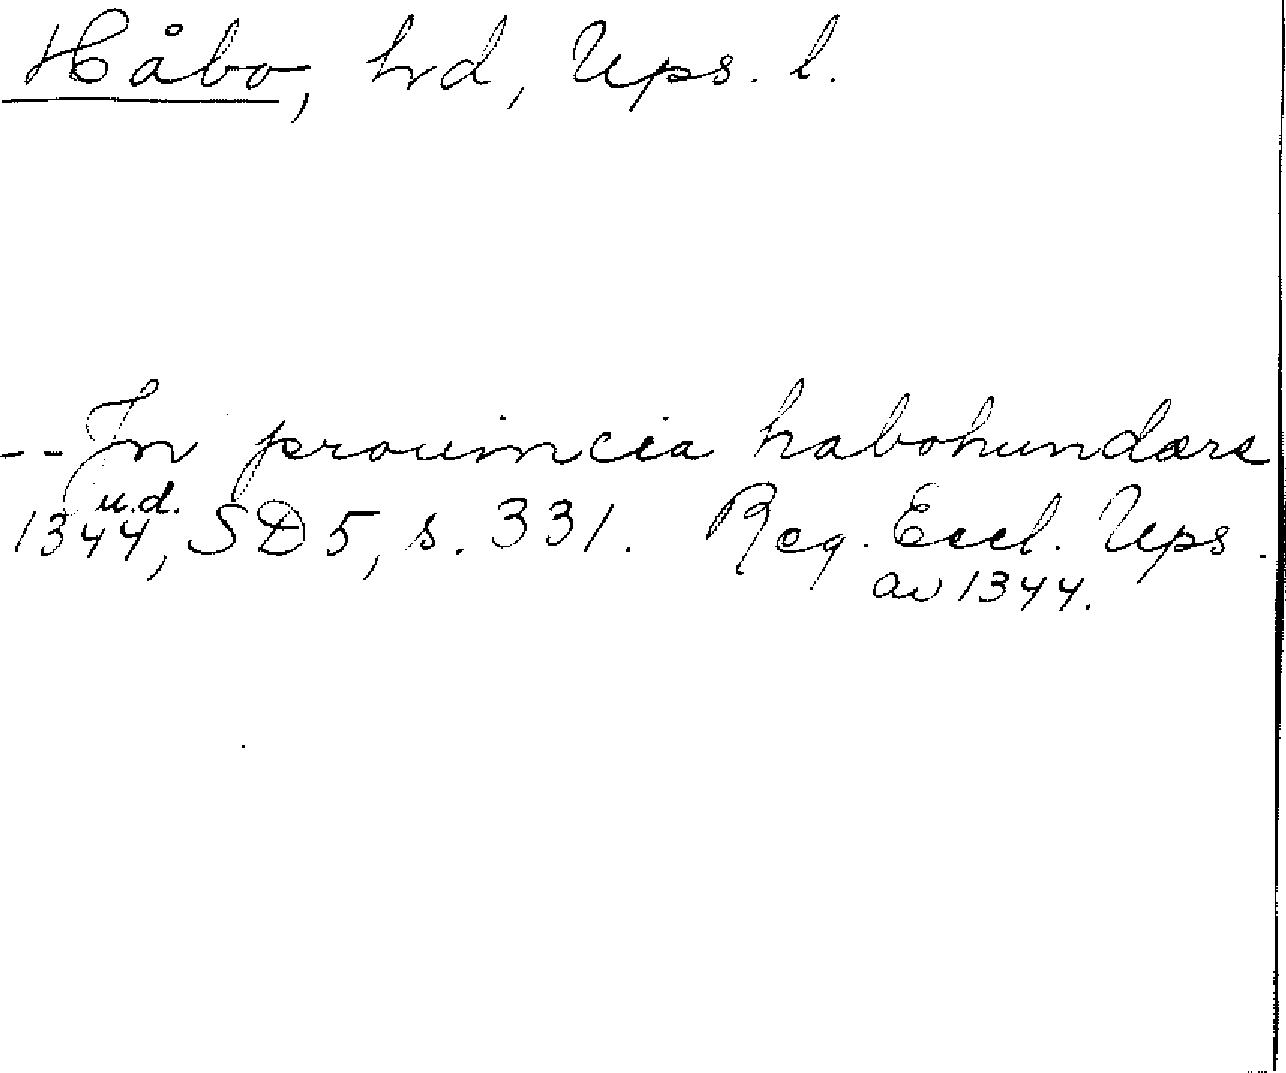 Håbo, hrd, Ups. l.
-- In prouincia habohundære
u.d.
1344, SD 5, s. 331. Reg. Eccl. Ups.
av 1344.